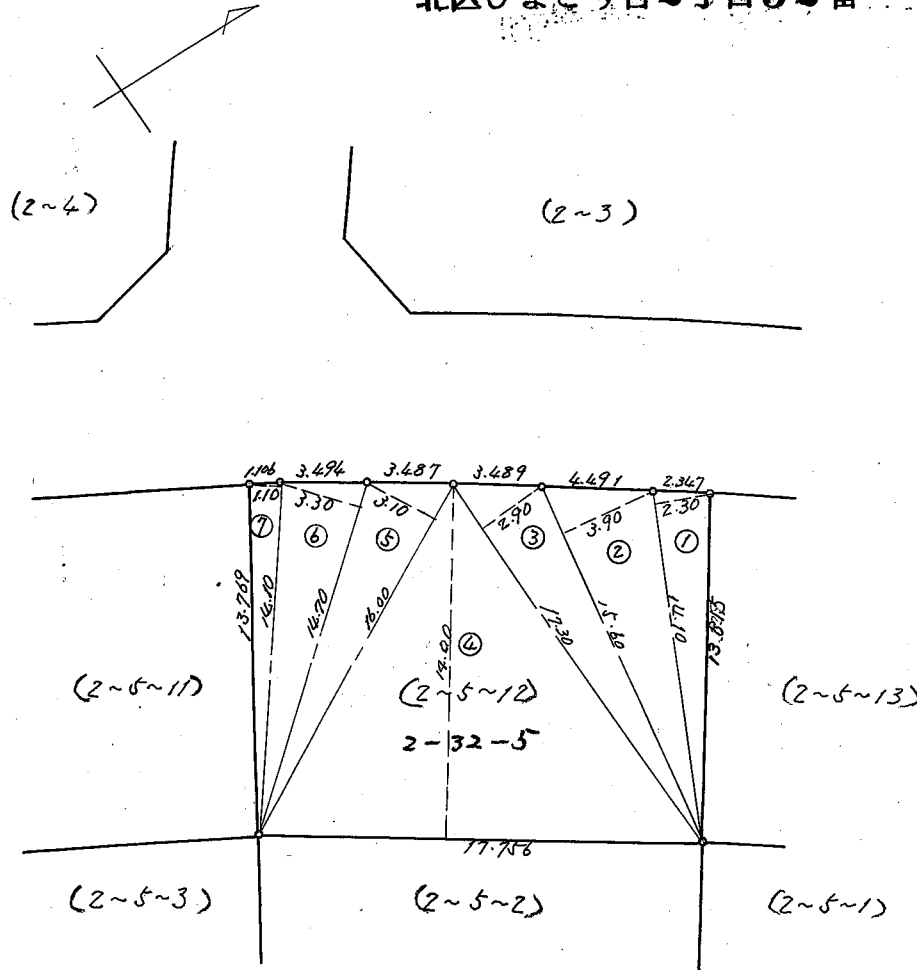 (2~4)
(2~3)
1.106
3.494
3.487
3.489
4.491
2.347
1.10
3.30
3.10
2.90
3.90
2.30
⑦
⑥
⑤
③
②
①
13.769
14.10
14.70
16.00
14.00
④
17.30
15.60
(2~5~11)
(2~5~12)
(2~5~13)
2-32-5
17.756
(2~5~3)
(2~5~2)
(2~5~1)